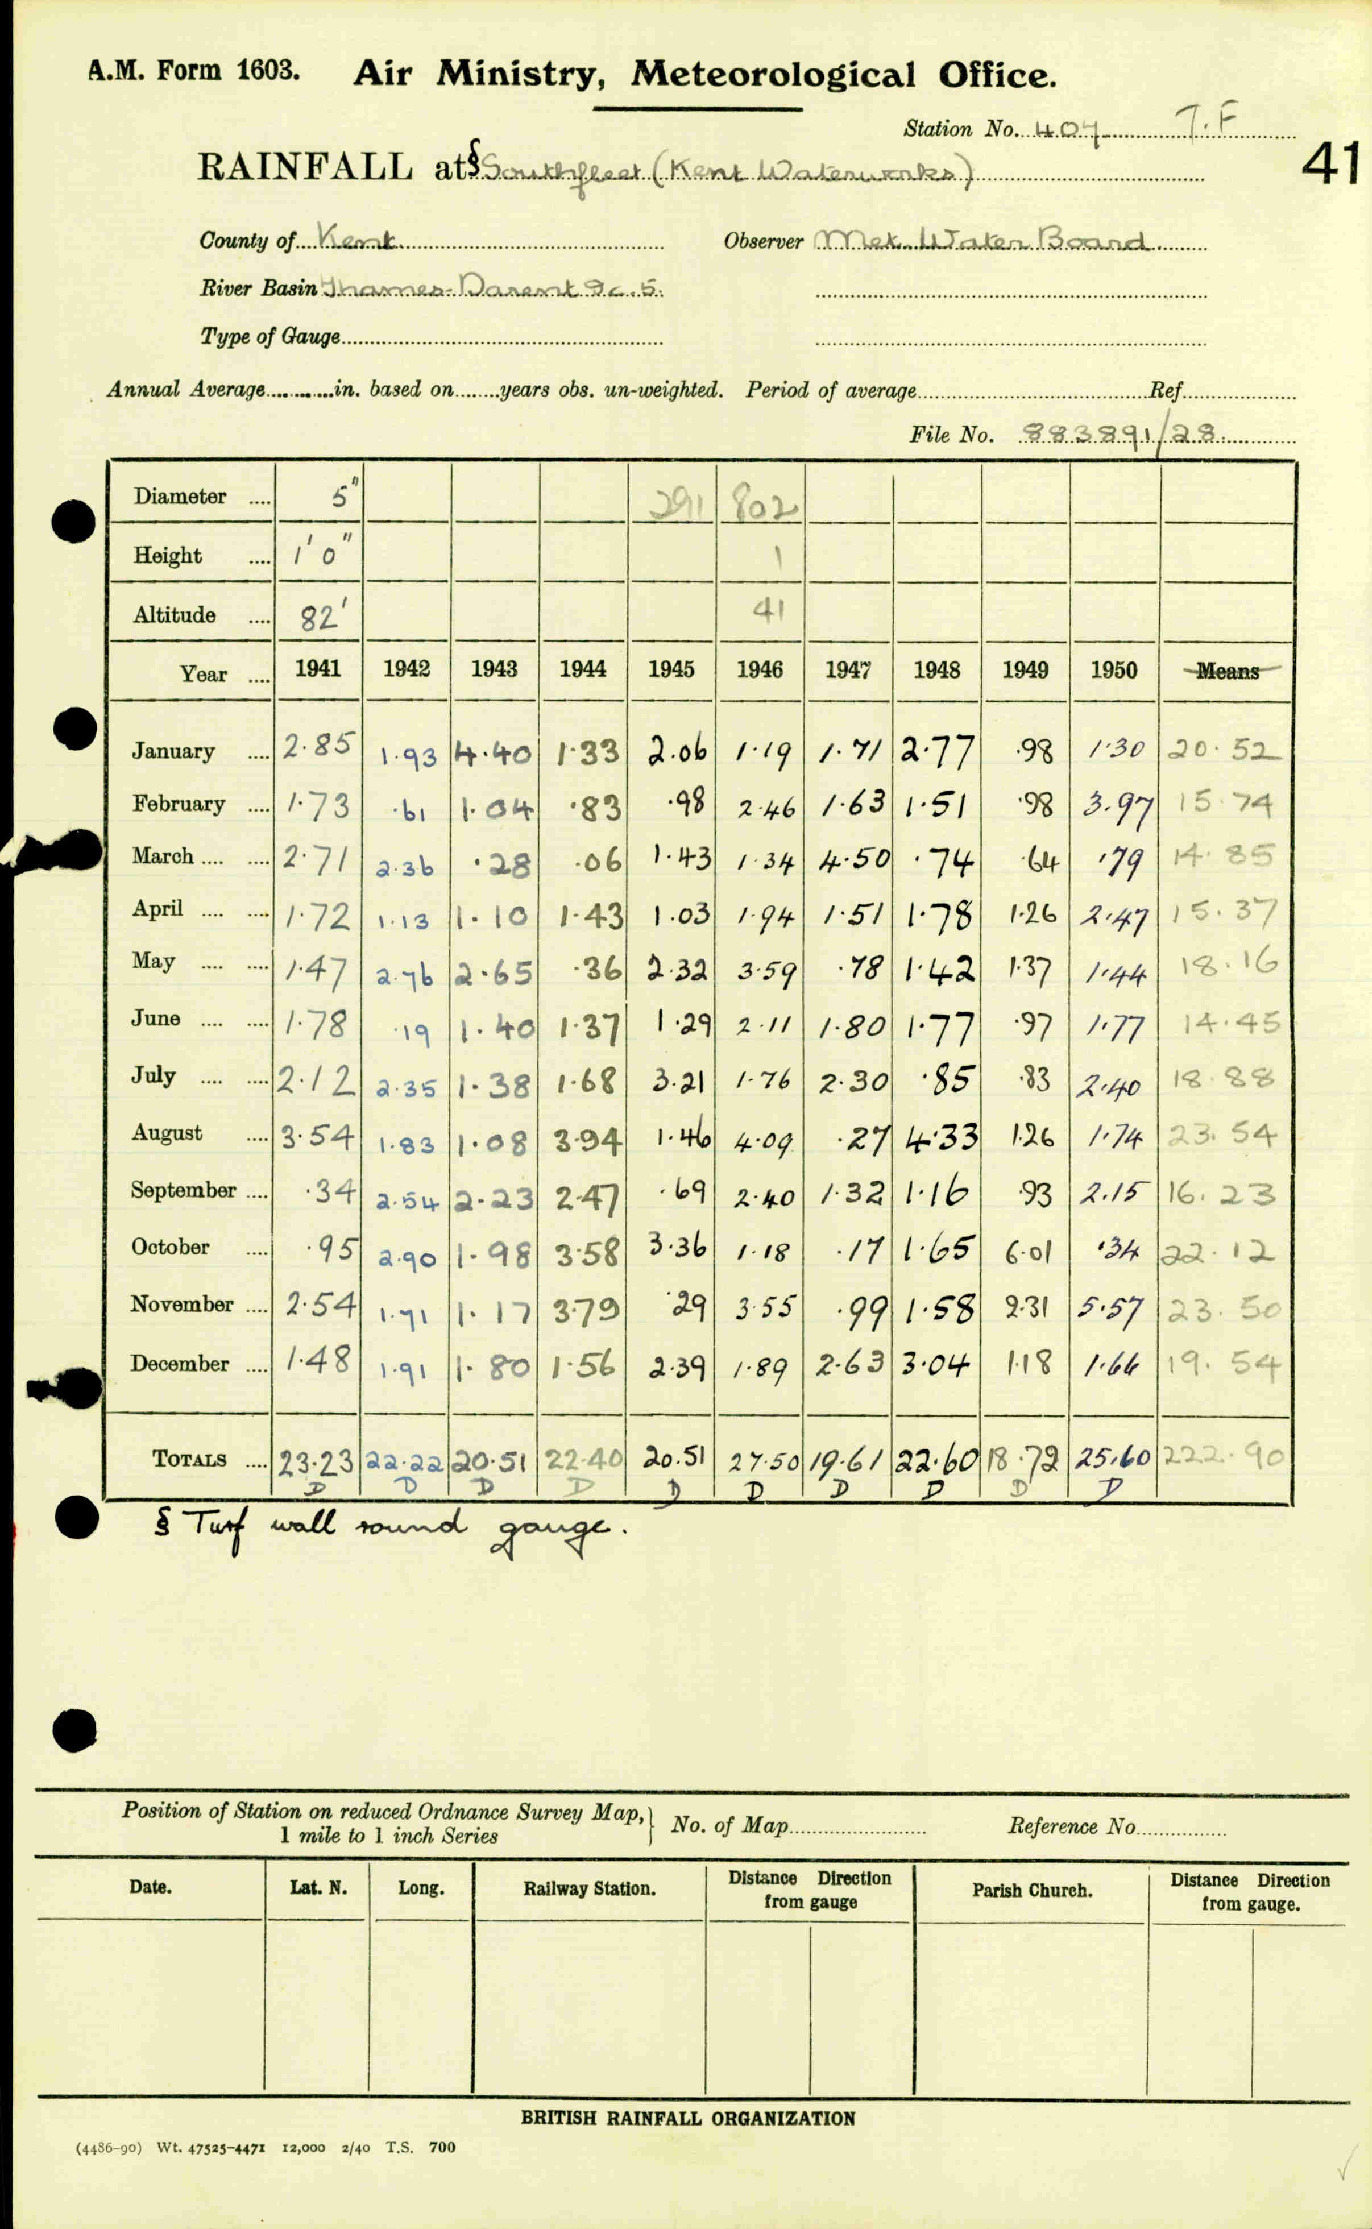 A.M. Form 1603. Air Ministry, Meteorological Office.
Station No. 407 T.F
41
RAINFALL at § Southfleet (Kent Waterworks)
County of Kent Observer Met. Water Board
River Basin Thames-Darent 9c.5.
Type of Gauge
Annual Average in. based on years obs. un-weighted. Period of average Ref.
File No. 883891/28
Diameter .... 5" 291 802
Height .... 1' 0" 1
Altitude .... 82' 41
Year .... 1941 1942 1943 1944 1945 1946 1947 1948 1949 1950 Means
January .... 2.85 1.93 4.40 1.33 2.06 1.19 1.71 2.77 .98 1.30 20.52
February .... 1.73 .61 1.04 .83 .98 2.46 1.63 1.51 .98 3.97 15.74
March .... .... 2.71 2.36 .28 .06 1.43 1.34 4.50 .74 .64 .79 14.85
April .... .... 1.72 1.13 1.10 1.43 1.03 1.94 1.51 1.78 1.26 2.47 15.37
May .... .... 1.47 2.76 2.65 .36 2.32 3.59 .78 1.42 1.37 1.44 18.16
June .... .... 1.78 .19 1.40 1.37 1.29 2.11 1.80 1.77 .97 1.77 14.45
July .... .... 2.12 2.35 1.38 1.68 3.21 1.76 2.30 .85 .83 2.40 18.88
August .... 3.54 1.83 1.08 3.94 1.46 4.09 .27 4.33 1.26 1.74 23.54
September .... .34 2.54 2.23 2.47 .69 2.40 1.32 1.16 .93 2.15 16.23
October .... .95 2.90 1.98 3.58 3.36 1.18 .17 1.65 6.01 .34 22.12
November .... 2.54 1.71 1.17 3.79 .29 3.55 .99 1.58 2.31 5.57 23.50
December .... 1.48 1.91 1.80 1.56 2.39 1.89 2.63 3.04 1.18 1.66 19.54
TOTALS .... 23.23 22.22 20.51 22.40 20.51 27.50 19.61 22.60 18.72 25.60 222.90
D D D D D D D D D D
§ Turf wall round gauge.
Position of Station on reduced Ordnance Survey Map, } No. of Map Reference No.
1 mile to 1 inch Series
Date. Lat. N. Long. Railway Station. Distance Direction from gauge Parish Church. Distance Direction from gauge.
BRITISH RAINFALL ORGANIZATION
(4486-90) Wt. 47525-4471 12,000 2/40 T.S. 700